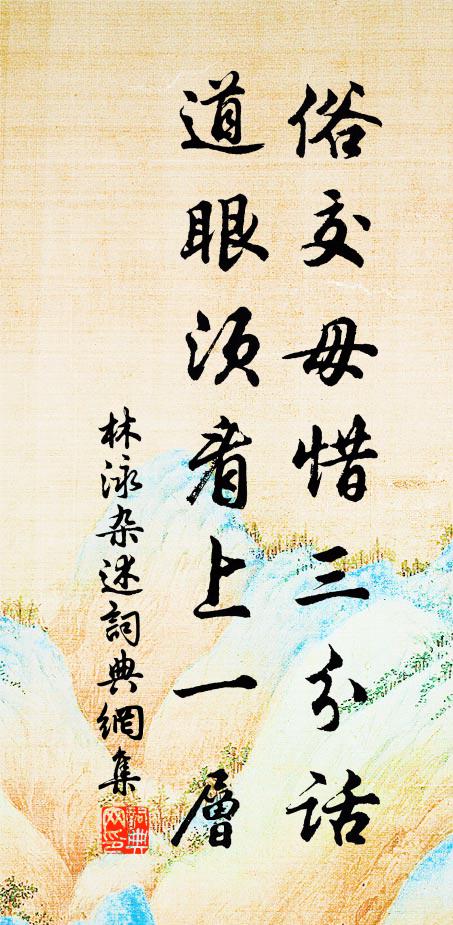 俗交毋惜三分话
道眼须看上一層
林泳杂述詞典網集
詞典网印